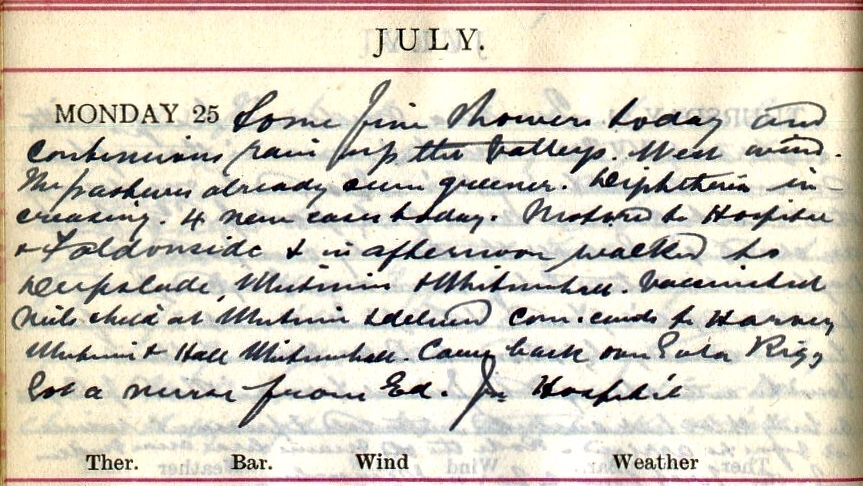 JULY.
MONDAY 25 Some fine showers today and
continuous rain up the valleys. West wind.
The pastures already seem greener. Diphtheria in-
creasing. 4 new cases today. Motored to Hospital
& Faldonside & in afternoon walked to
Deepslade, &
child at & Com. cards to Harvey
& Hall Came back over Rig,
Got a nurse from Ed. for Hospital
Ther. Bar. Wind Weather